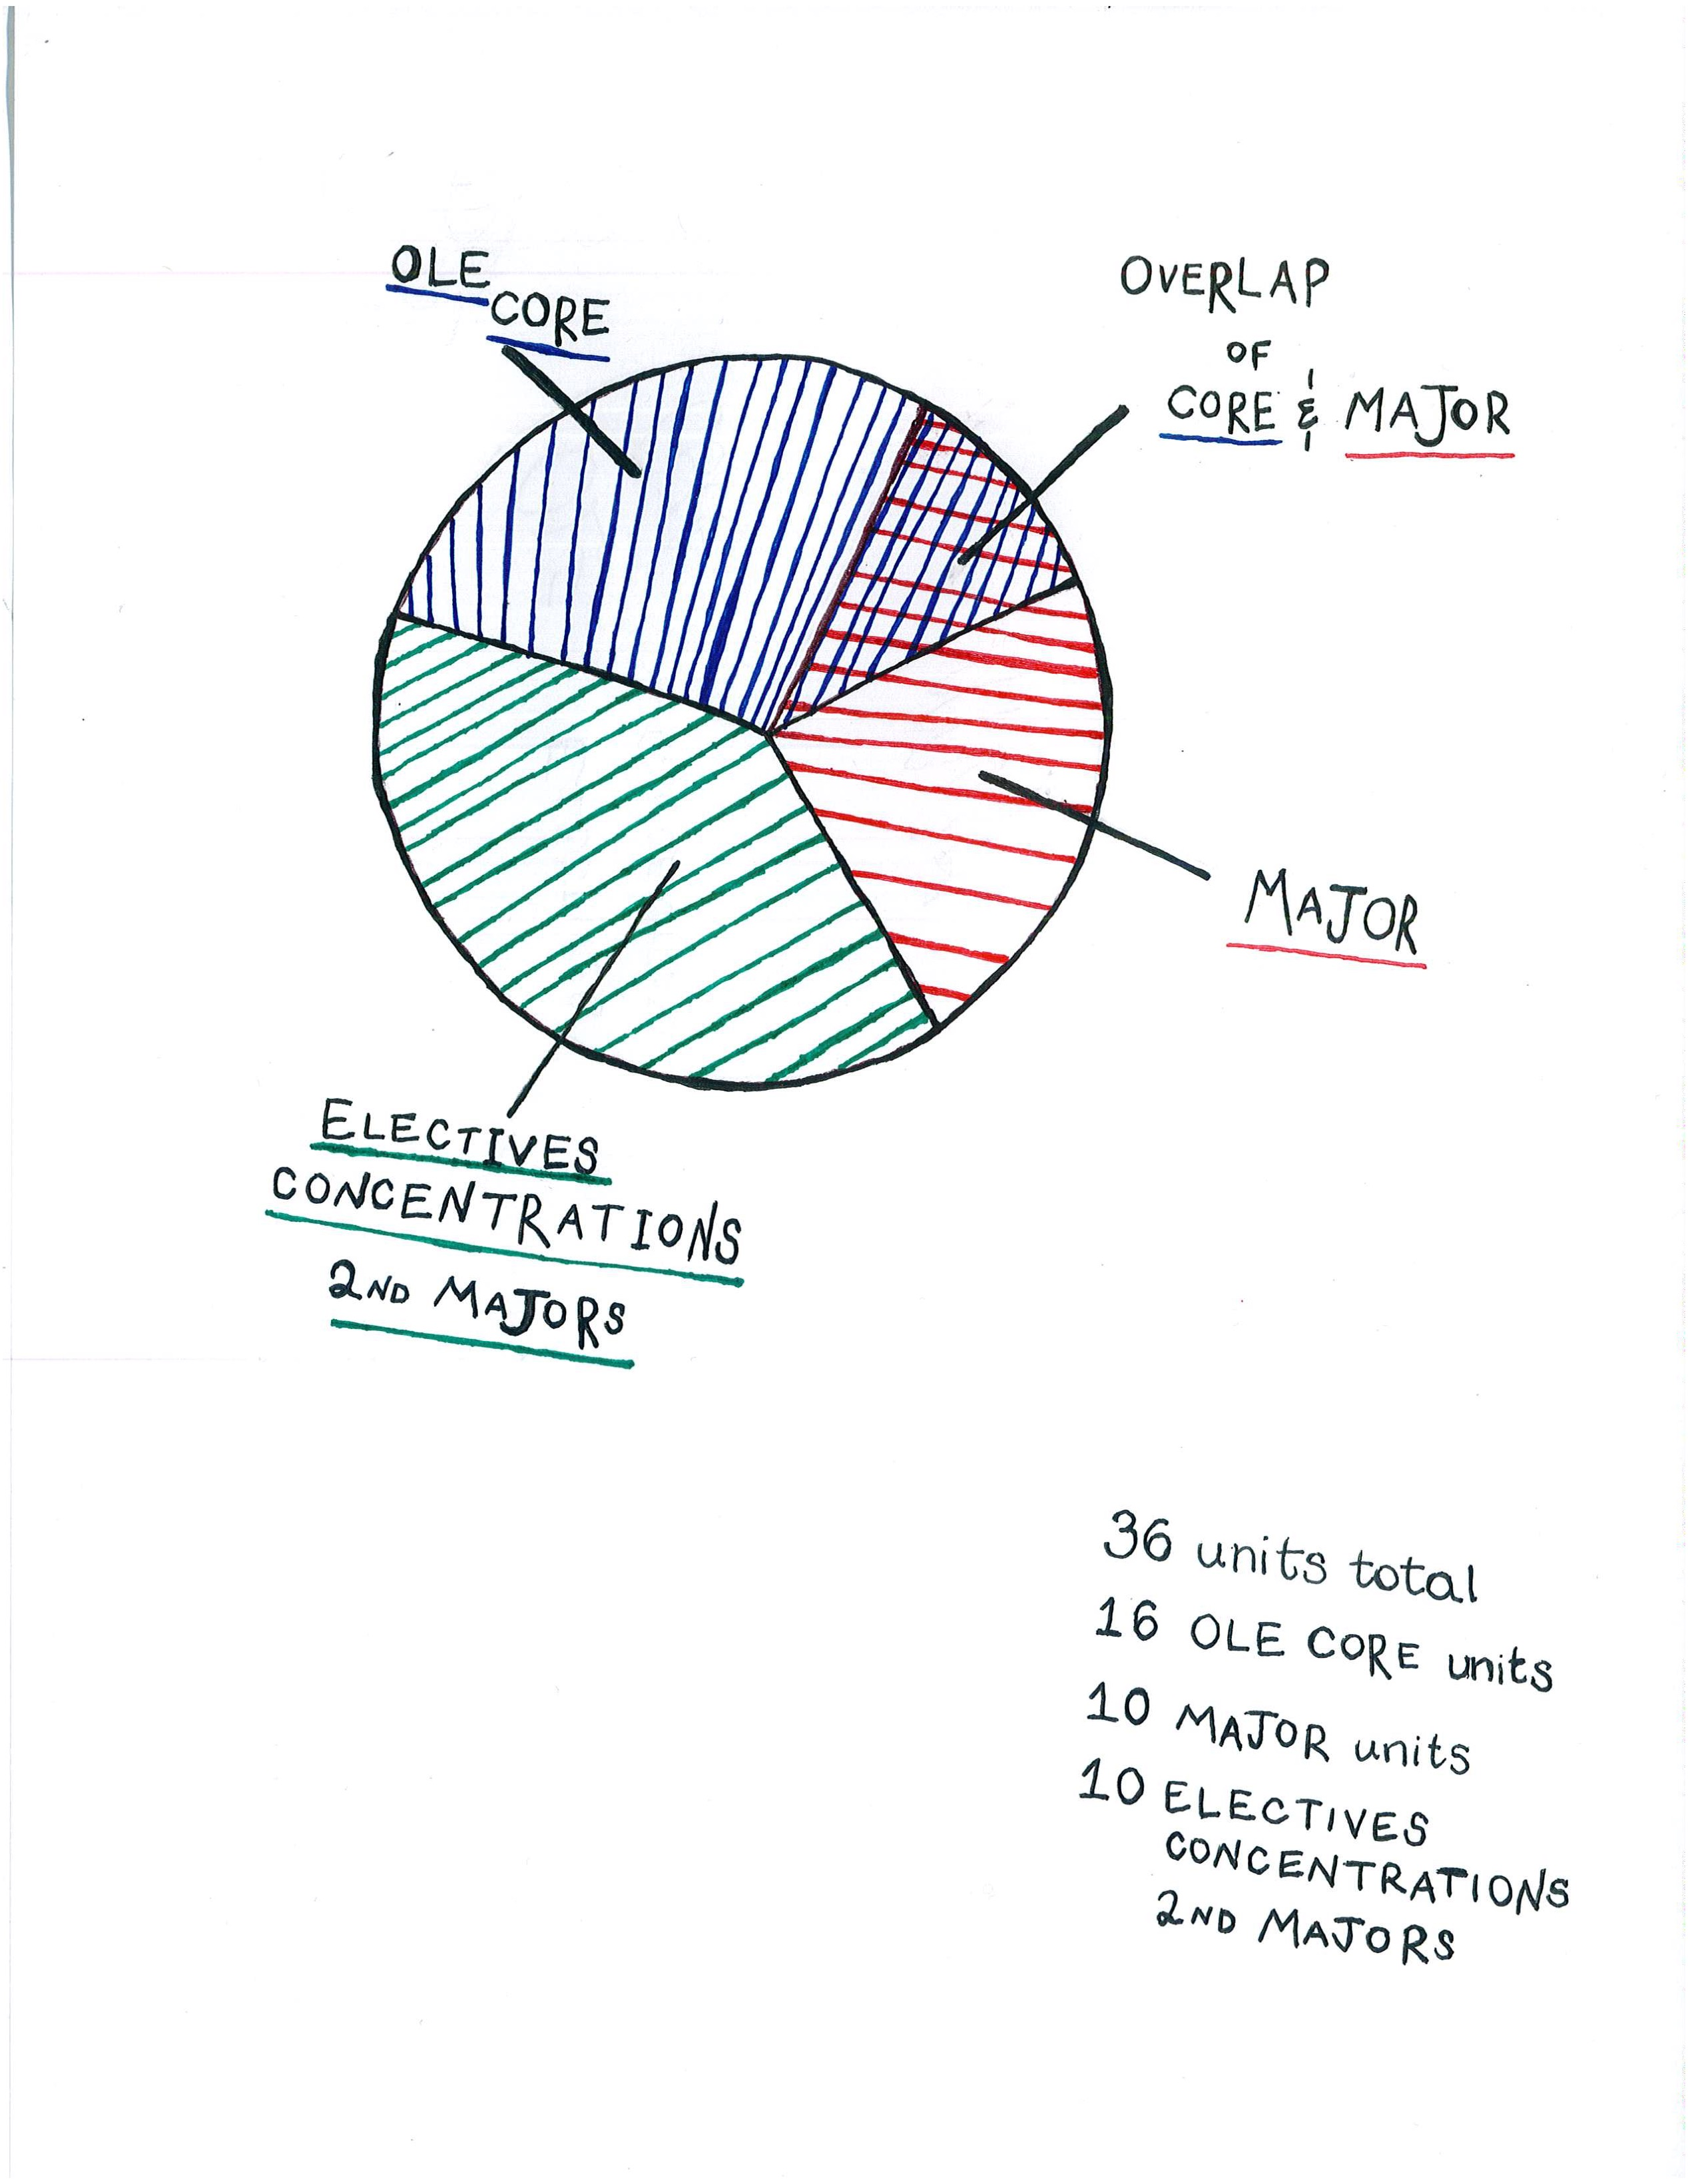 OLE
CORE
OVERLAP
OF
CORE & MAJOR
MAJOR
ELECTIVES
CONCENTRATIONS
2ND MAJORS
36 units total
16 OLE CORE units
10 MAJOR units
10 ELECTIVES
CONCENTRATIONS
2ND MAJORS